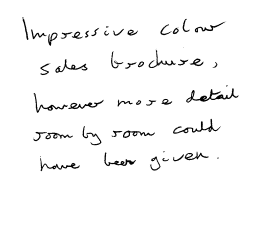 Impressive colour
sales brochure,
however more detail
room by room could
have been given.